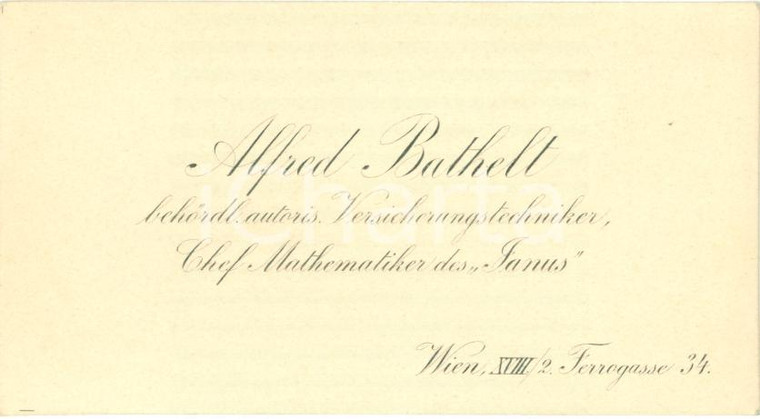 Alfred Bathelt
behördl. autoris. Versicherungstechniker,
Chef Mathematiker des „Janus"
Wien, XVIII/2. Ferrogasse 34.
iCharta